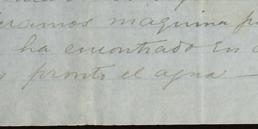 maquina
ha encontrado en
pronto el agua —